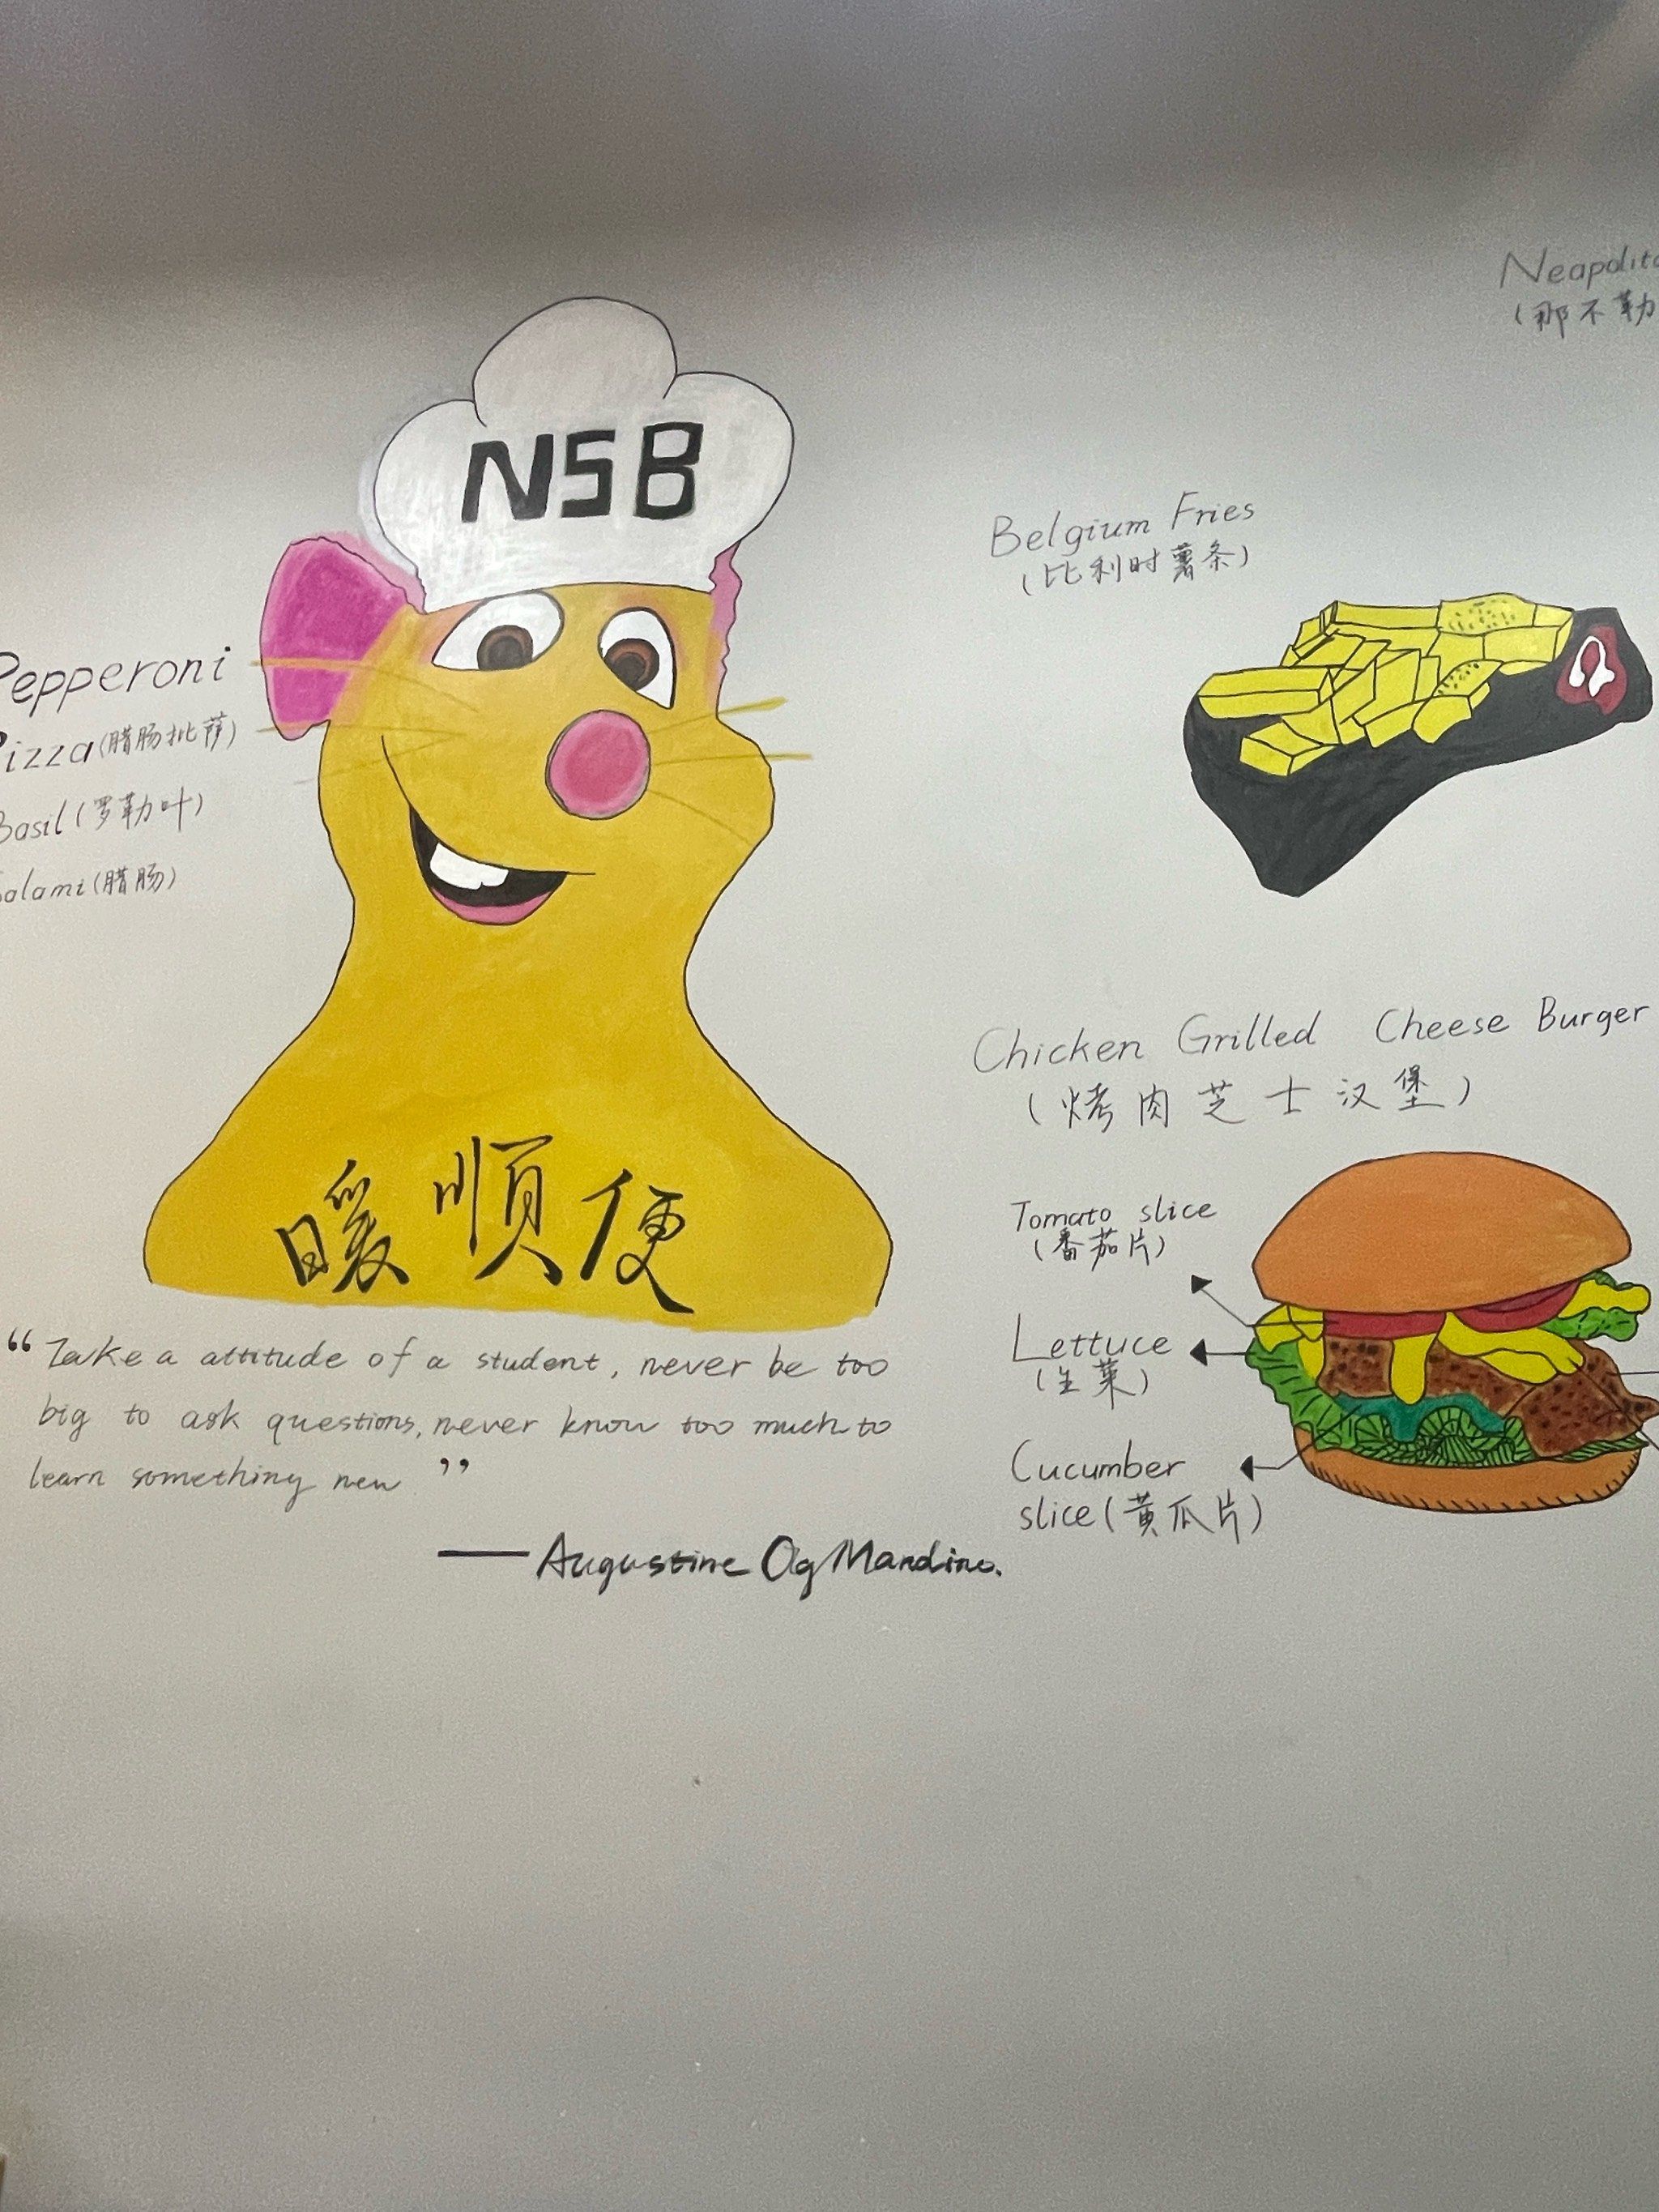 NSB
Pepperoni
Pizza(腊肠批萨)
Basil(罗勒叶)
Salami(腊肠)
暖顺便
“Take a attitude of a student, never be too
big to ask questions, never know too much to
learn something new ”
——Augustine Og Mandino.
Neapolita
(那不勒
Belgium Fries
(比利时薯条)
Chicken Grilled Cheese Burger
(烤肉芝士汉堡)
Tomato slice
(番茄片)
Lettuce
(生菜)
Cucumber
slice(黄瓜片)